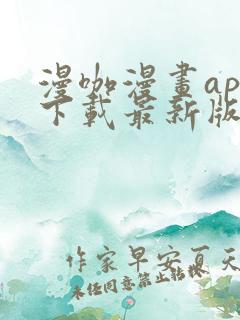 漫咖漫畫ap
下載最新版
作家早安夏天
未经同意禁止转载